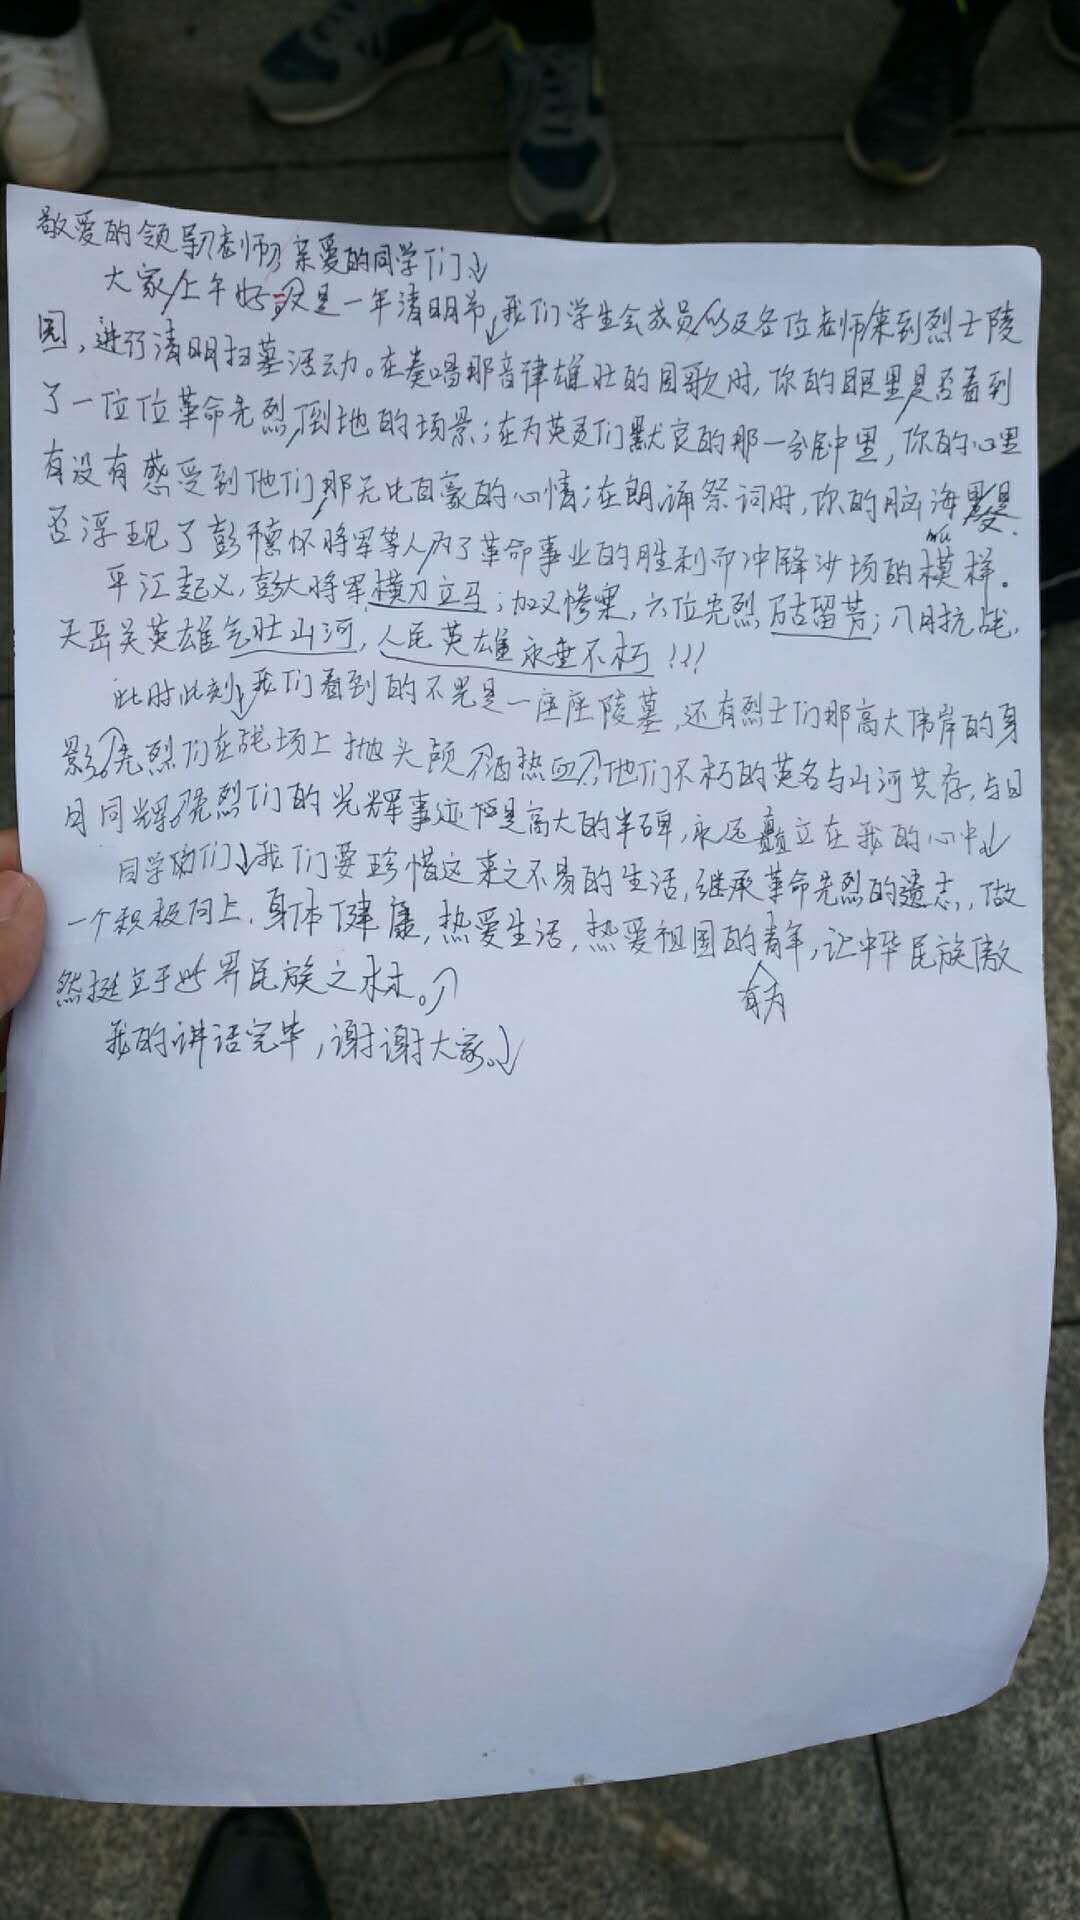 敬爱的领导,老师,亲爱的同学们
大家上午好,又是一年清明节,我们学生会成员以及各位老师来到烈士陵
园,进行清明扫墓活动。在奏唱那音律雄壮的国歌时,你的眼里是否看到
了一位位革命先烈倒地的场景;在为英灵们默哀的那一分钟里,你的心里
有没有感受到他们那无比自豪的心情;在朗诵祭词时,你的脑海里是
否浮现了彭德怀将军等人为了革命事业的胜利而冲锋沙场的模样。
平江起义,彭大将军横刀立马;加义惨案,六位先烈万古留芳;八月抗战,
天岳关英雄气壮山河,人民英雄永垂不朽!!!
此时此刻,我们看到的不光是一座座陵墓,还有烈士们那高大伟岸的身
影。先烈们在战场上抛头颅洒热血,他们不朽的英名与山河共存,与日
月同辉。先烈们的光辉事迹恰是高大的丰碑,永远矗立在我的心中。
同学们,我们要珍惜这来之不易的生活,继承革命先烈的遗志,做
一个积极向上,身体健康,热爱生活,热爱祖国的青年,让中华民族傲
然挺立于世界民族之林。
有为
我的讲话完毕,谢谢大家。